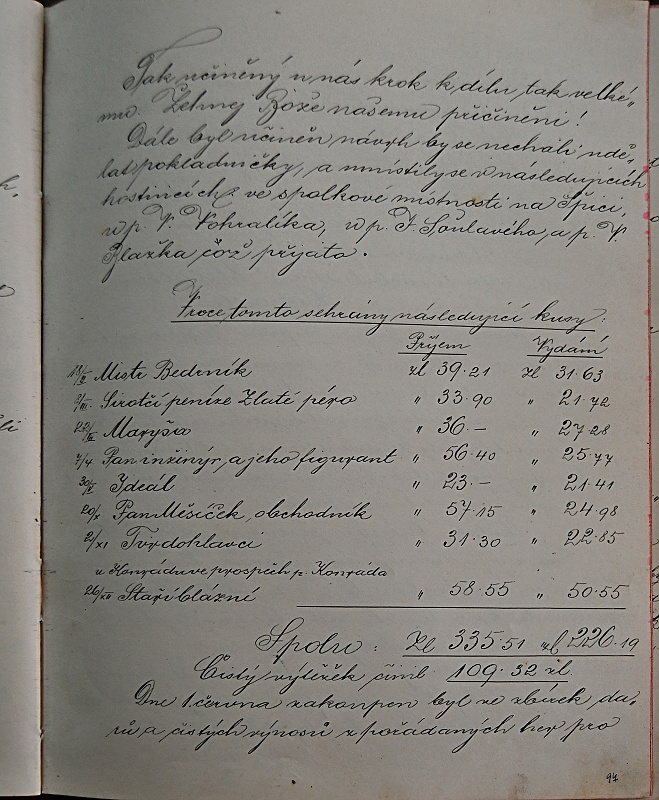 Tak učiněný u nás krok k dílu tak velké„
mu. Žehnej Bože našemu přičinění!
Dále byl učiněn návrh by se nechali udě„
lat pokladničky, a umístily se v následujících
hostincích: ve spolkové místnosti na Špici,
u p. V. Vohralíka, u p. F. Soulavého, a p. V.
Blažka což přijato.
V roce tomto sehrány následující kusy:
Příjem Vydání
18/II Mistr Bedrník zl 39.21 zl 31.63
3/III. Sirotčí peníze Zlaté péro „ 33.90 „ 21.72
22/III Maryša „ 36.— „ 27.28
7/4 Pan inžinýr, a jeho figurant „ 56.40 „ 25.77
30/V Ideál „ 23.— „ 21.41
20/X Pan Měsíček, obchodník „ 57.15 „ 24.98
2/XI Tvrdohlavci „ 31.30 „ 22.85
u Konrádu ve prospěch p. Konráda
26/XII Staří blázni „ 58.55 „ 50.55
Spolu: Zl 335.51 zl 226.19
Čistý výtěžek činil 109.32 zl.
Dne 1. června zakoupen byl ze sbírek da„
rů a čistých výnosů z pořádaných her pro
94